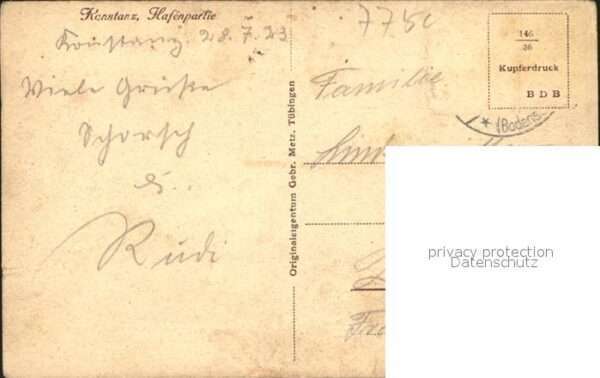 Konstanz, Hafenpartie
Konstanz, 28. 7. 23
Viele Grüße
Schorsch
&..
Rudi
Originaleigentum Gebr. Metz, Tübingen
7750
146
36
Kupferdruck
BDB
* (Bodens
Familie
privacy protection
Datenschutz